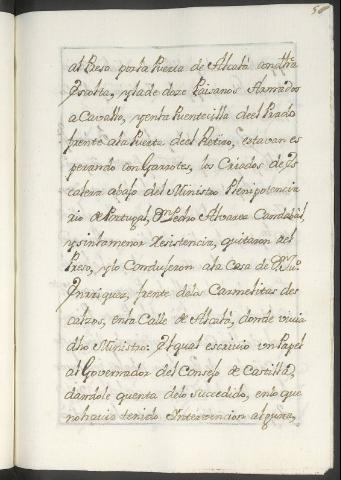 al Preso por la Puerta de Alcalá con dha
Escolta, y la de doze Paisanos Armados
a Cavallo, y en la Puentecilla del Prado
frente a la Puerta del Retiro, estavan es
perando con Garrotes, los Criados de Es
calera abajo del Ministro Plenipotencia
rio de Portugal, Dn. Pedro Alvarez Candabal,
y sin la menor Resistencia, quitaron al
Preso, y lo Condujeron a la Casa de
Enrriquez, frente de los Carmelitas des
calzos, en la Calle de Alcalá, donde vivia
dho Ministro: El qual escrivio un Papel
al Governador del Consejo de Castilla,
dandole quenta de lo succedido, en lo que
no havia tenido Intervencion alguna,